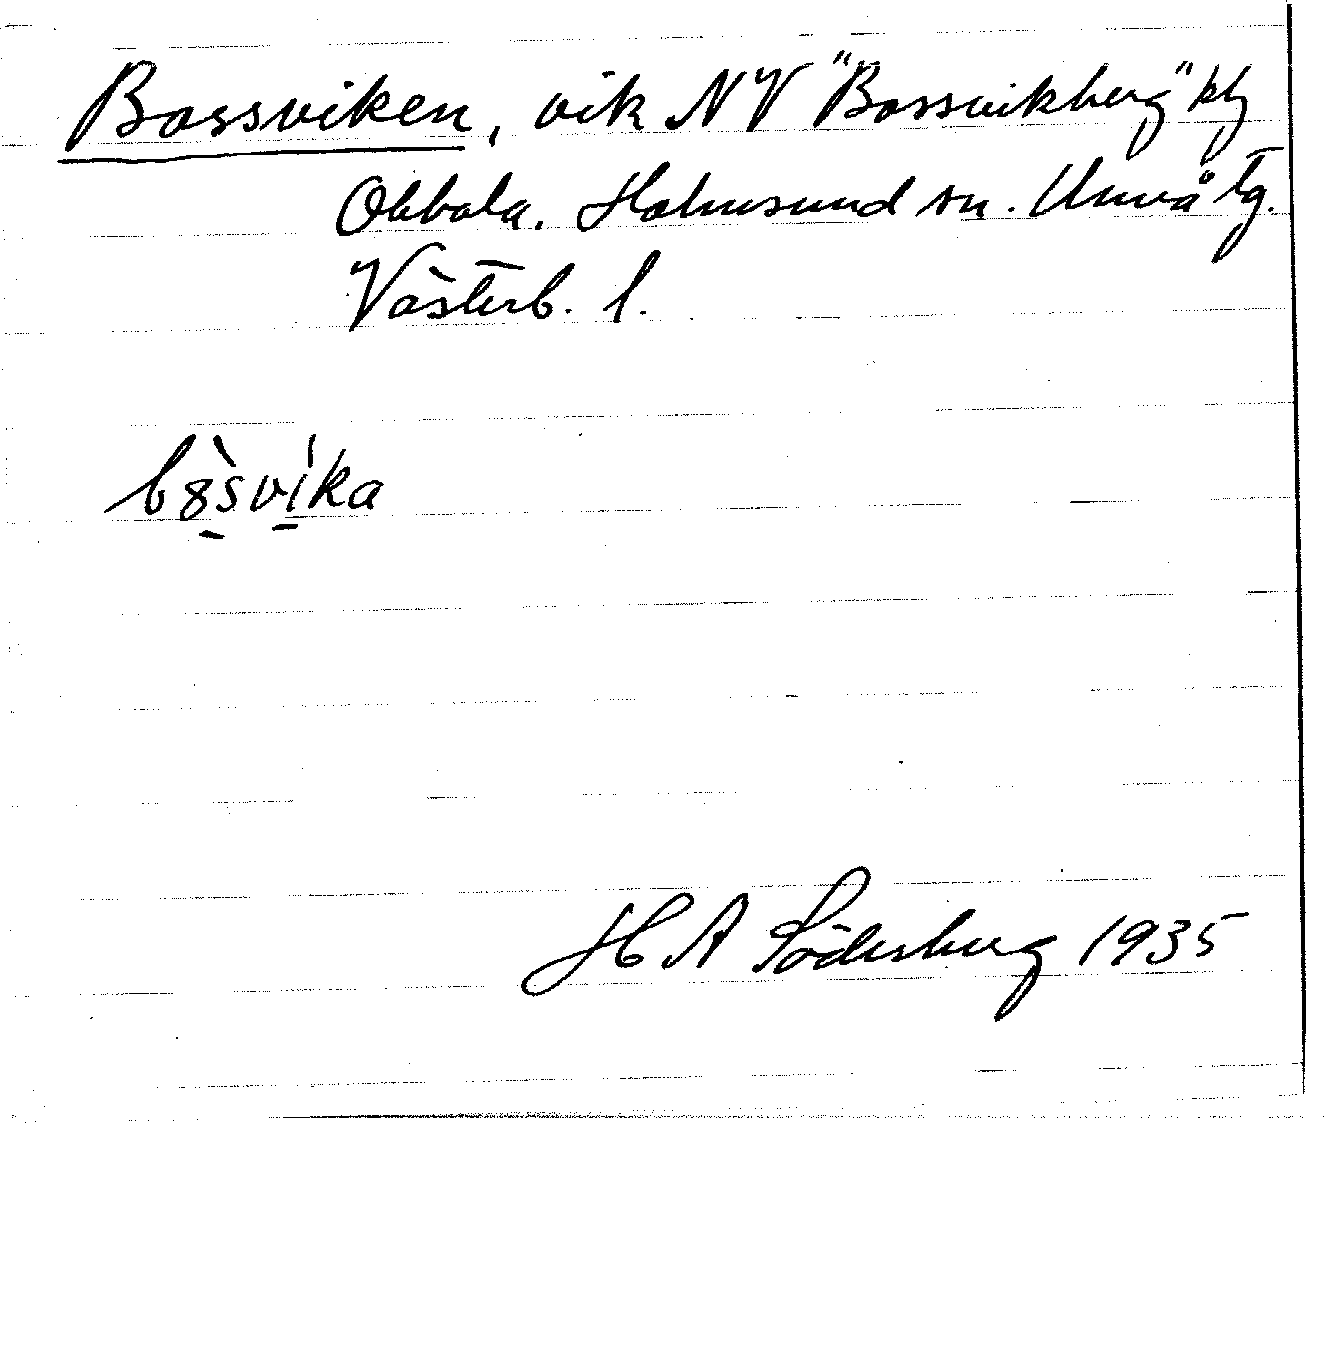 Bossviken, vik NV "Bossvikberg" kbg
Obbola. Holmsund sn. Umeå tg.
Västerb. l.
bȣ̀svíka
H A Söderberg 1935